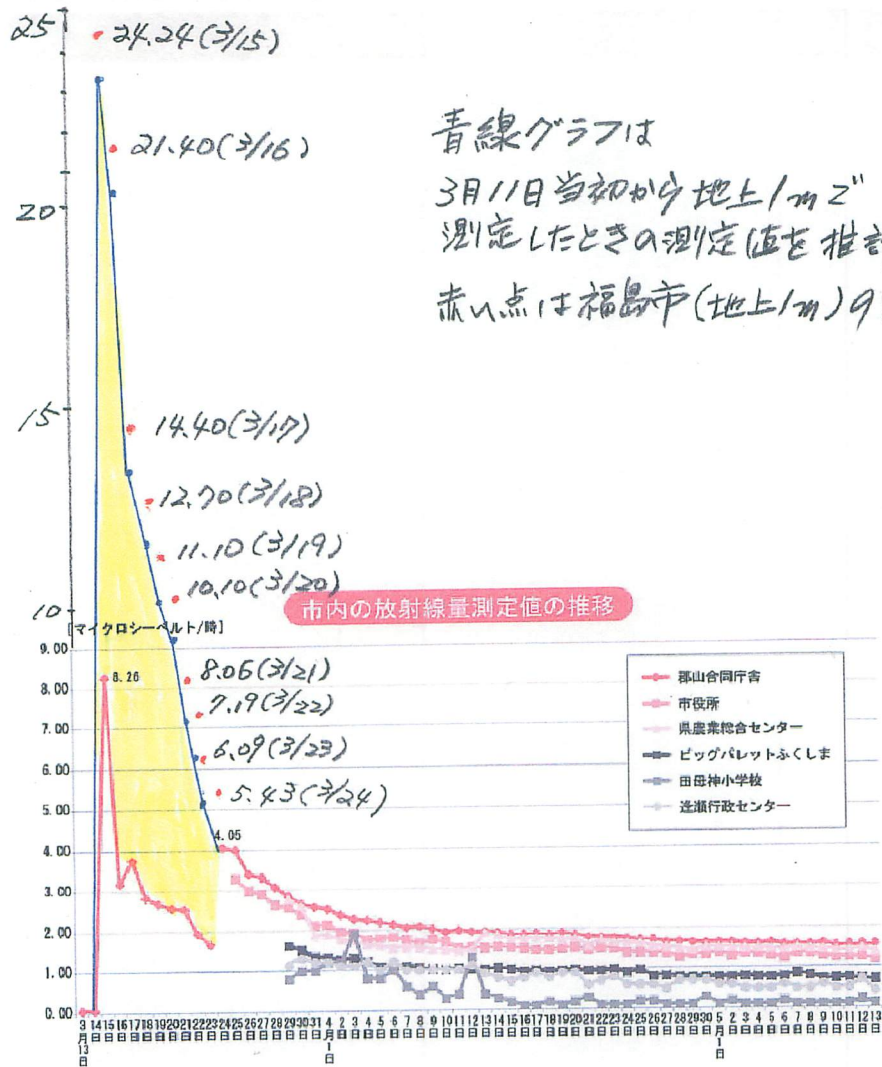 25
24.24(3/15)
21.40(3/16)
青線グラフは
3月11日当初から地上1mで
測定したときの測定値を推
赤い点は福島市(地上1m)の
20
15
14.40(3/17)
12.70(3/18)
11.10(3/19)
10.10(3/20)
10
市内の放射線量測定値の推移
[マイクロシーベルト/時]
9.00
8.00
7.00
6.00
5.00
4.00
3.00
2.00
1.00
0.00
8.26
8.06(3/21)
7.19(3/22)
6.09(3/23)
5.43(3/24)
4.05
郡山合同庁舎
市役所
県農業総合センター
ビッグパレットふくしま
田母神小学校
逢瀬行政センター
3月13日 14日 15日 16日 17日 18日 19日 20日 21日 22日 23日 24日 25日 26日 27日 28日 29日 30日 31日 4月1日 2日 3日 4日 5日 6日 7日 8日 9日 10日 11日 12日 13日 14日 15日 16日 17日 18日 19日 20日 21日 22日 23日 24日 25日 26日 27日 28日 29日 30日 5月1日 2日 3日 4日 5日 6日 7日 8日 9日 10日 11日 12日 13日